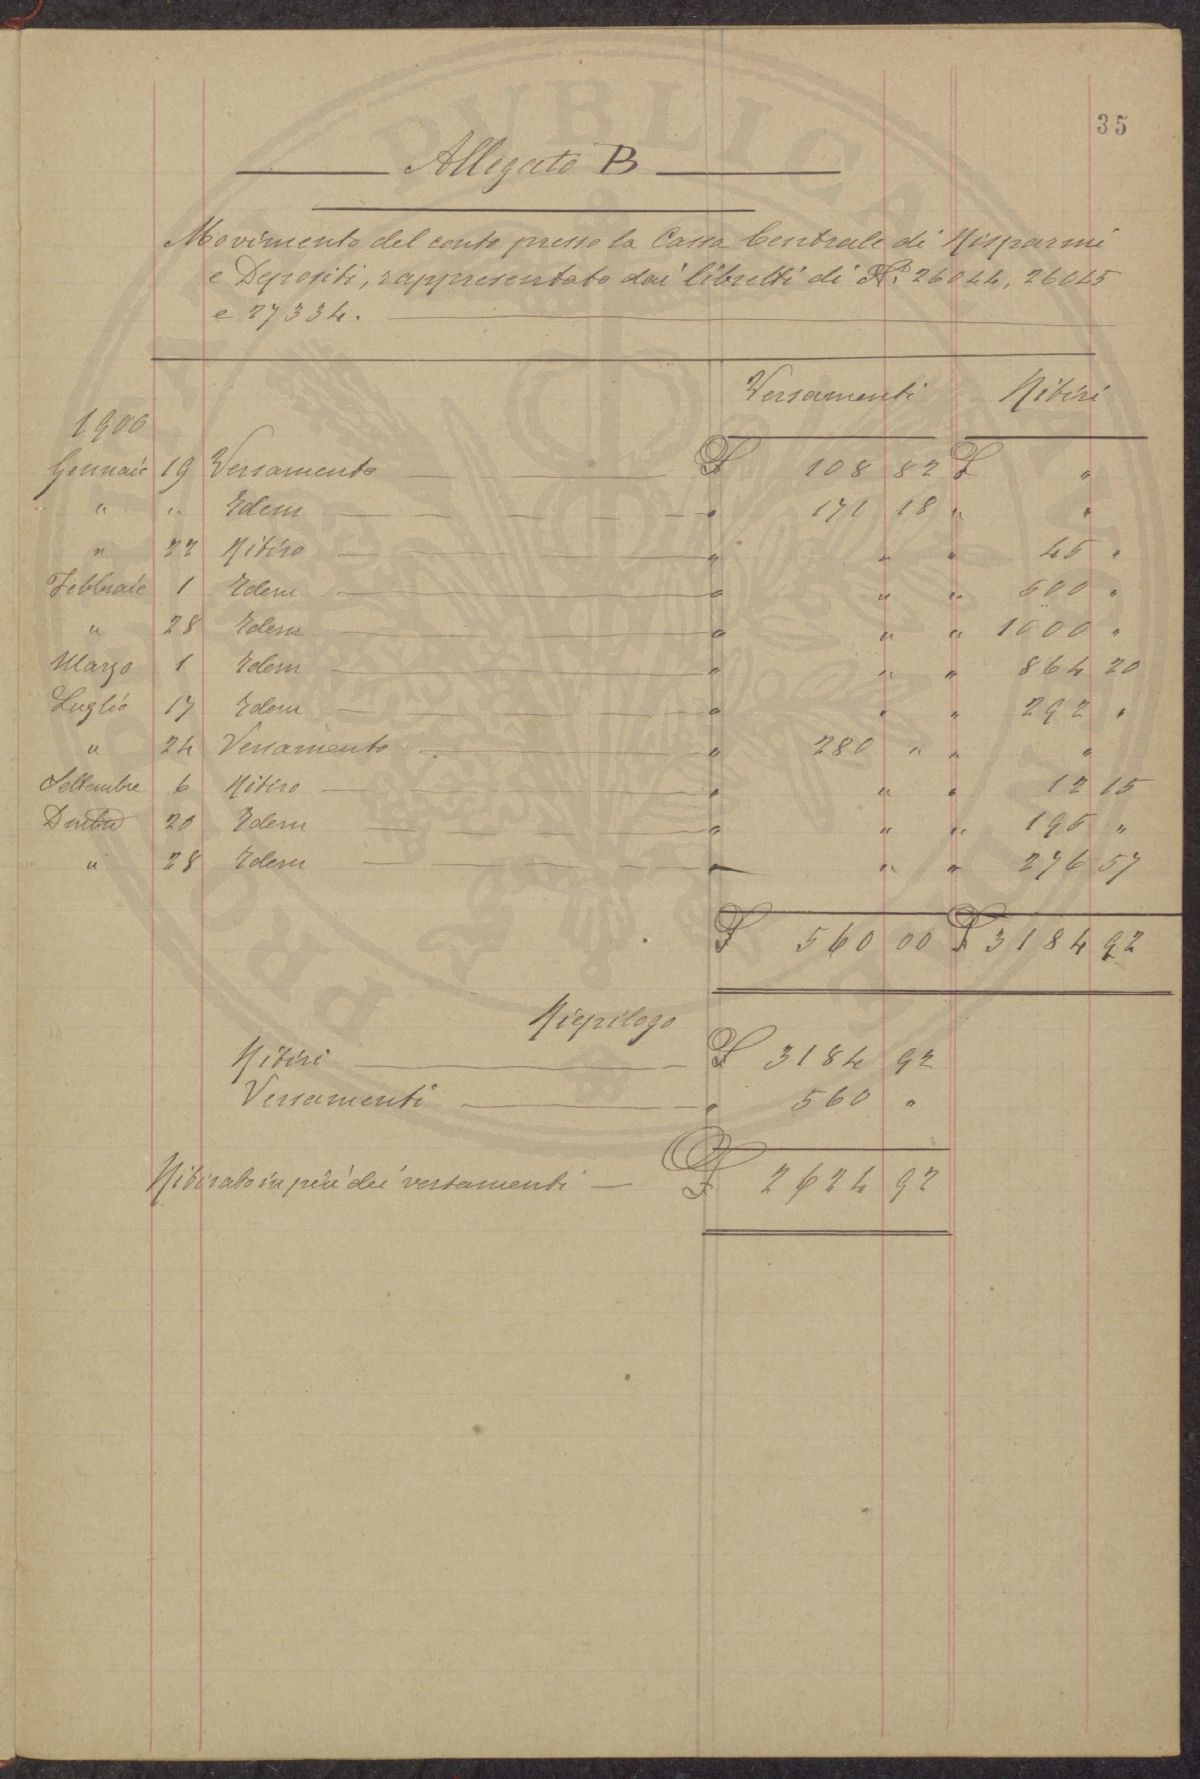 35
Allegato B
Movimento del conto presso la Cassa Centrale di Risparmi
e Depositi, rappresentato dai libretti di N.i 26044, 26045
e 27334.
Versamenti Ritiri
1906
Gennaio 19 Versamento £ 108 82 £ "
" " Idem " 171 18 " "
" 22 Ritiro " " " 45 "
Febbraio 1 Idem " " " 500 "
" 28 Idem " " " 1000 "
Marzo 1 Idem " " " 864 20
Luglio 17 Idem " " " 292 "
" 24 Versamento " 280 " " "
Settembre 6 Ritiro " " " 12 15
Dmbre 20 Idem " " " 195 "
" 28 Idem " " " 276 57
£ 560 00 £ 3184 92
Riepilogo
Ritiri £ 3184 92
Versamenti " 560 "
Ritirato in più dei versamenti £ 2624 92